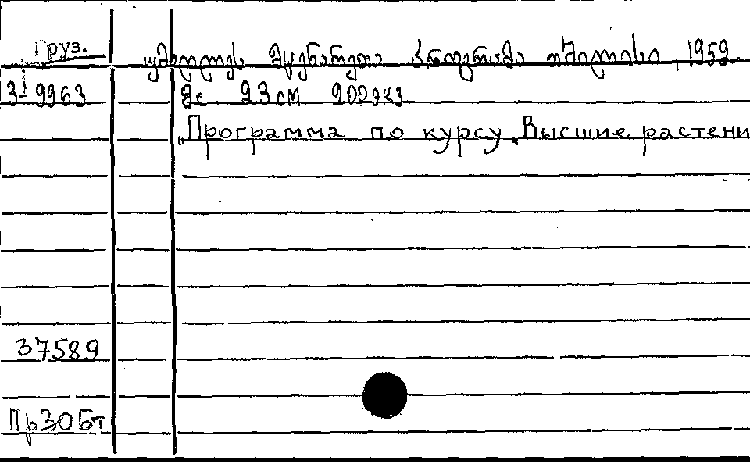 Груз.
უმაღლეს მცენარეთა პროგრამა თბილისი, 1959
3-9963 8с. 23см 200экз
„Программа по курсу „Высшие растени
37589
Пр30бт